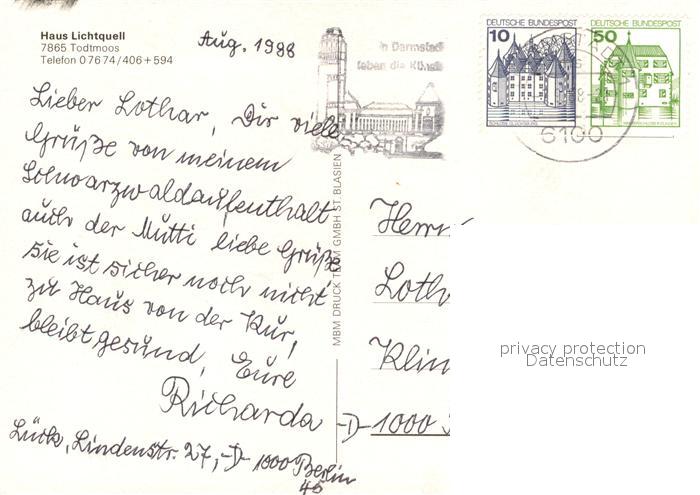 Haus Lichtquell
7865 Todtmoos
Telefon 07674/406+594
Aug. 1988
in Darmstadt
leben die Künste
DEUTSCHE BUNDESPOST
10
DEUTSCHE BUNDESPOST
50
6100
Lieber Lothar, Dir viele
Grüße von meinem
Schwarzwaldaufenthalt
auch der Mutti liebe Grüße
sie ist sicher noch nicht
zu Haus von der Kur,
bleibt gesund, Eure
Richarda
Lück, Lindenstr. 27, -D- 1000 Berlin
45
MBM DRUCK TEAM GMBH ST. BLASIEN
Herrn
Loth
Klin
-D- 1000
privacy protection
Datenschutz